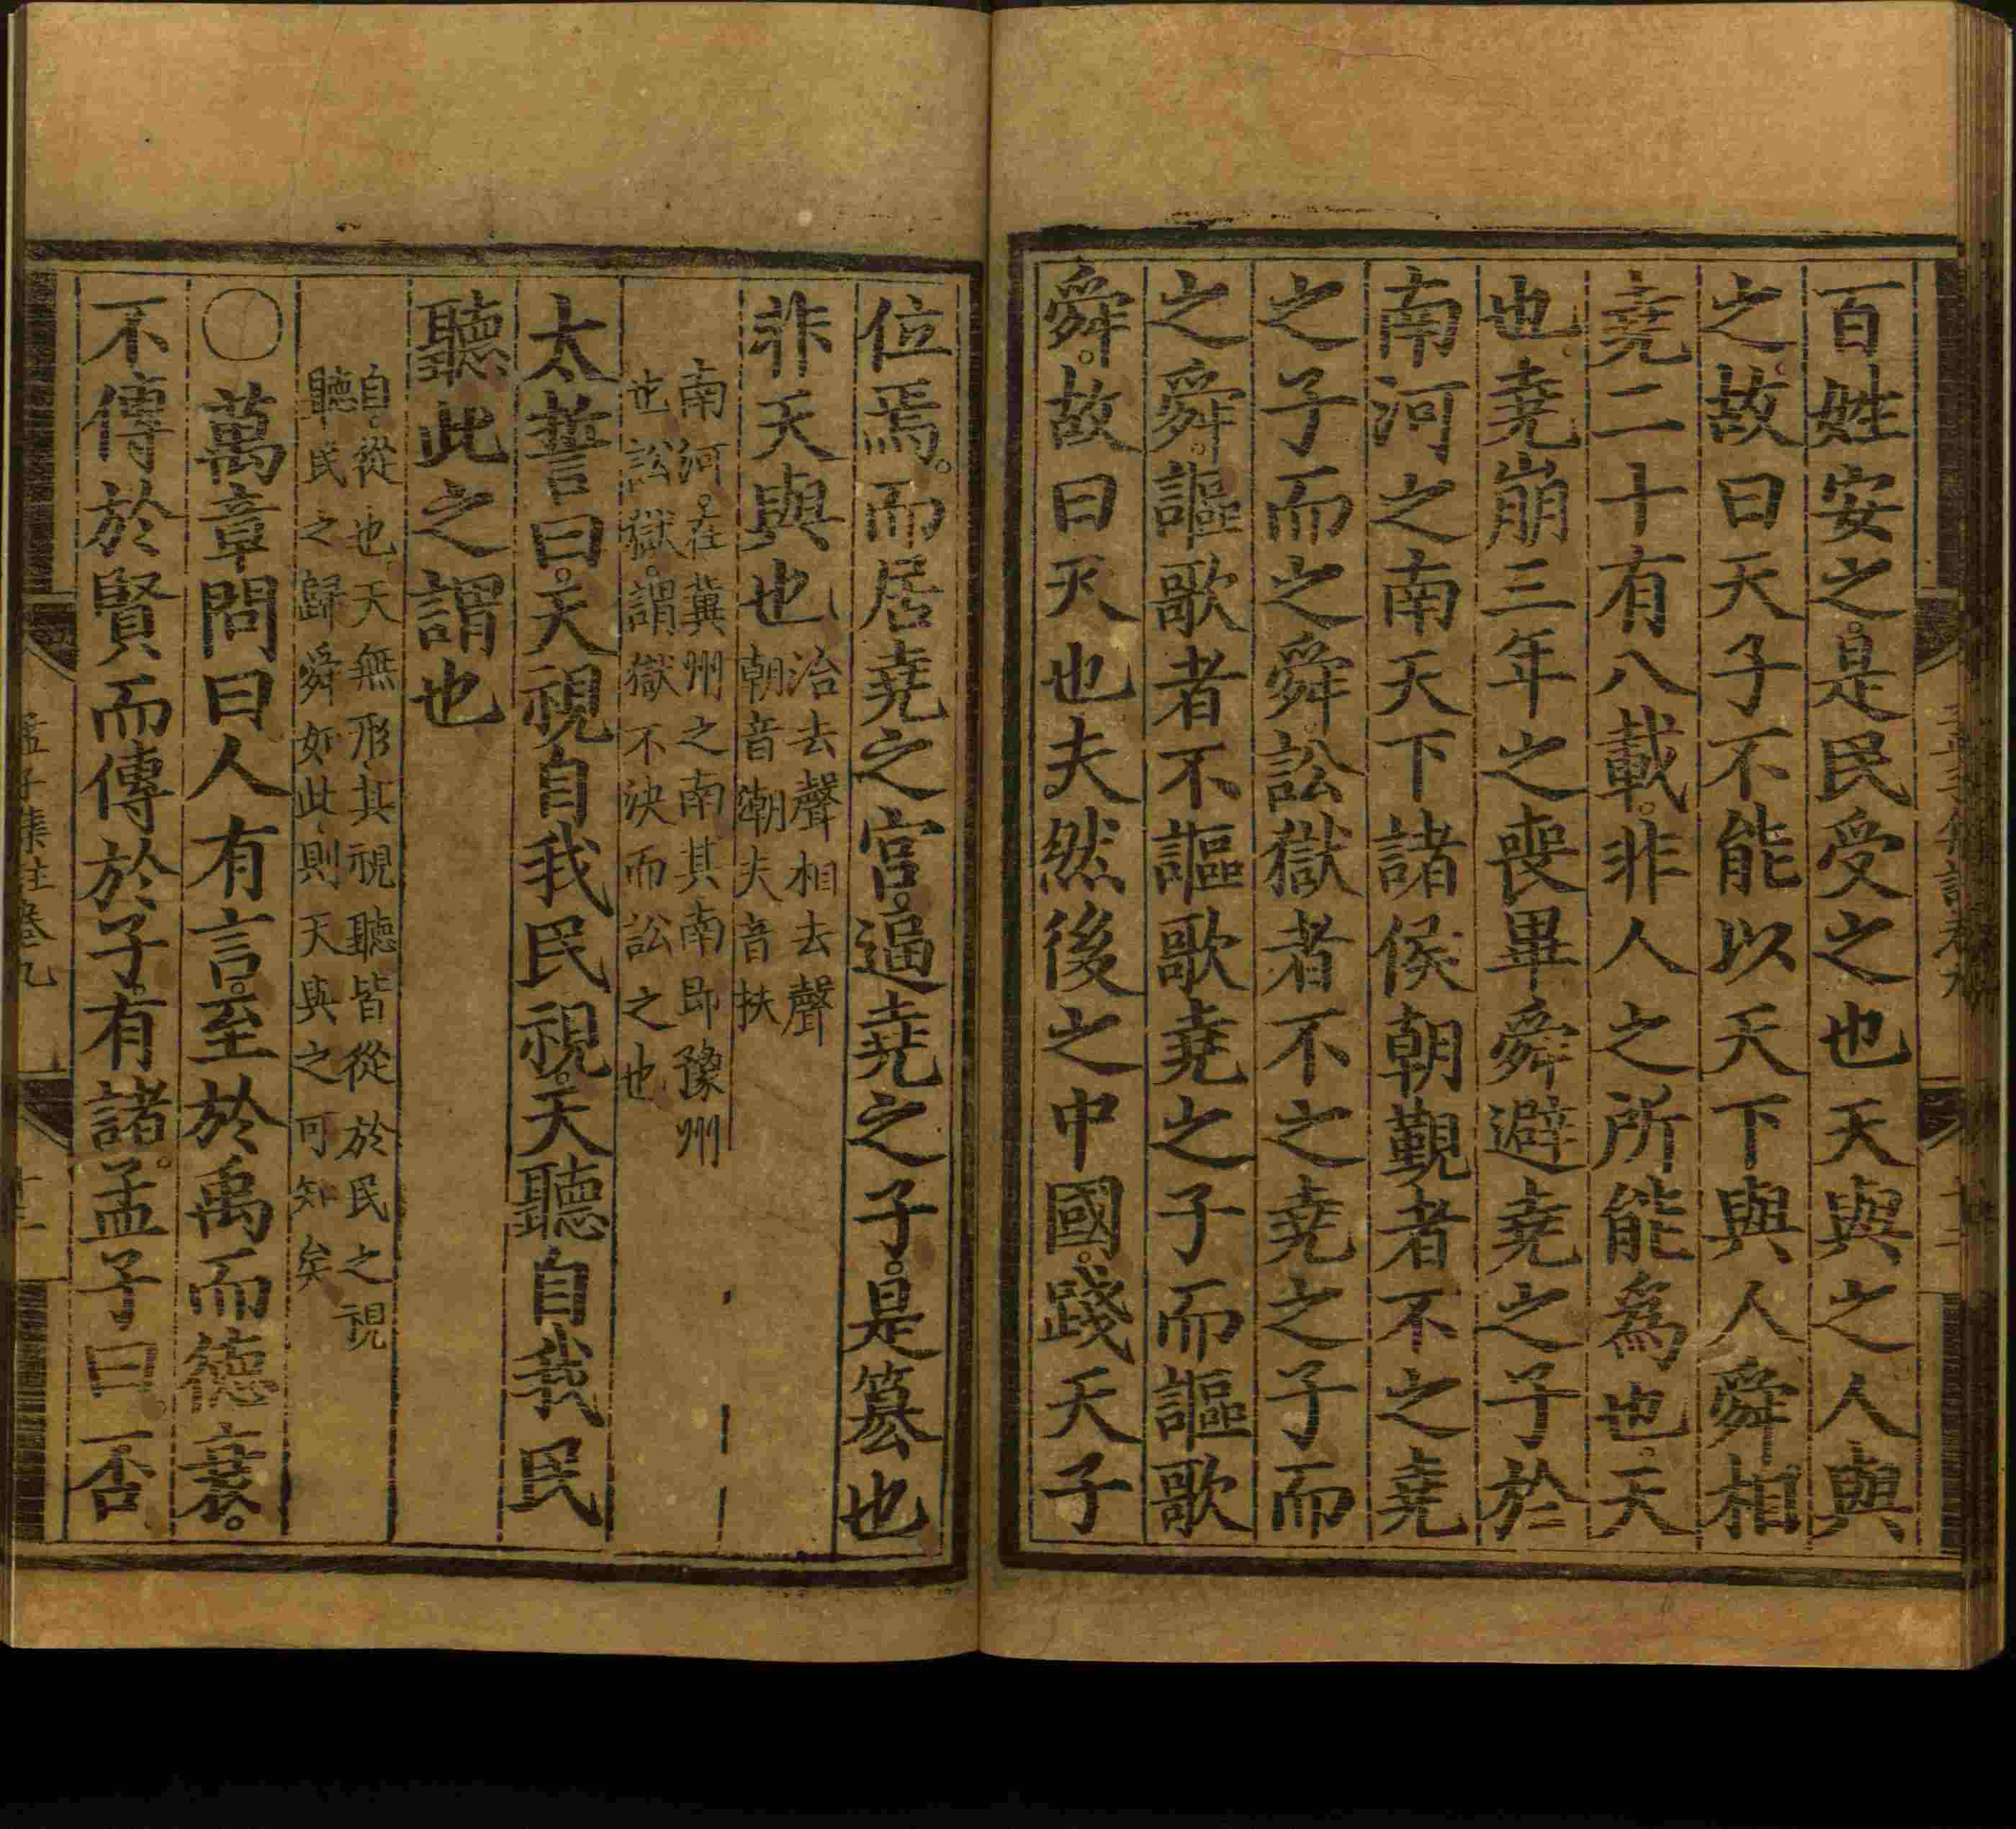 百姓安之。是民受之也天與之人與
之。故曰天子不能以天下與人舜相
堯二十有八載。非人之所能爲也。天
也。堯崩三年之喪畢舜避堯之子於
南河之南天下諸侯朝覲者不之堯
之子而之舜。訟獄者不之堯之子而
之舜。謳歌者不謳歌堯之子而謳歌
舜。故曰天也夫然後之中國。踐天子
位焉。而居堯之宮。逼堯之子。是簒也
非天與也治去聲相去聲
朝音潮夫音扶
南河。在冀州之南其南即豫州
也訟獄。謂獄不決而訟之也
太誓曰。天視自我民視。天聽自我民
聽此之謂也
自。從也、天無形、其視聽皆從於民之視
聽民之歸舜如此、則天與之可知矣
○萬章問曰人有言。至於禹而德衰。
不傳於賢而傳於子。有諸。孟子曰。否
孟子集註卷九
十二